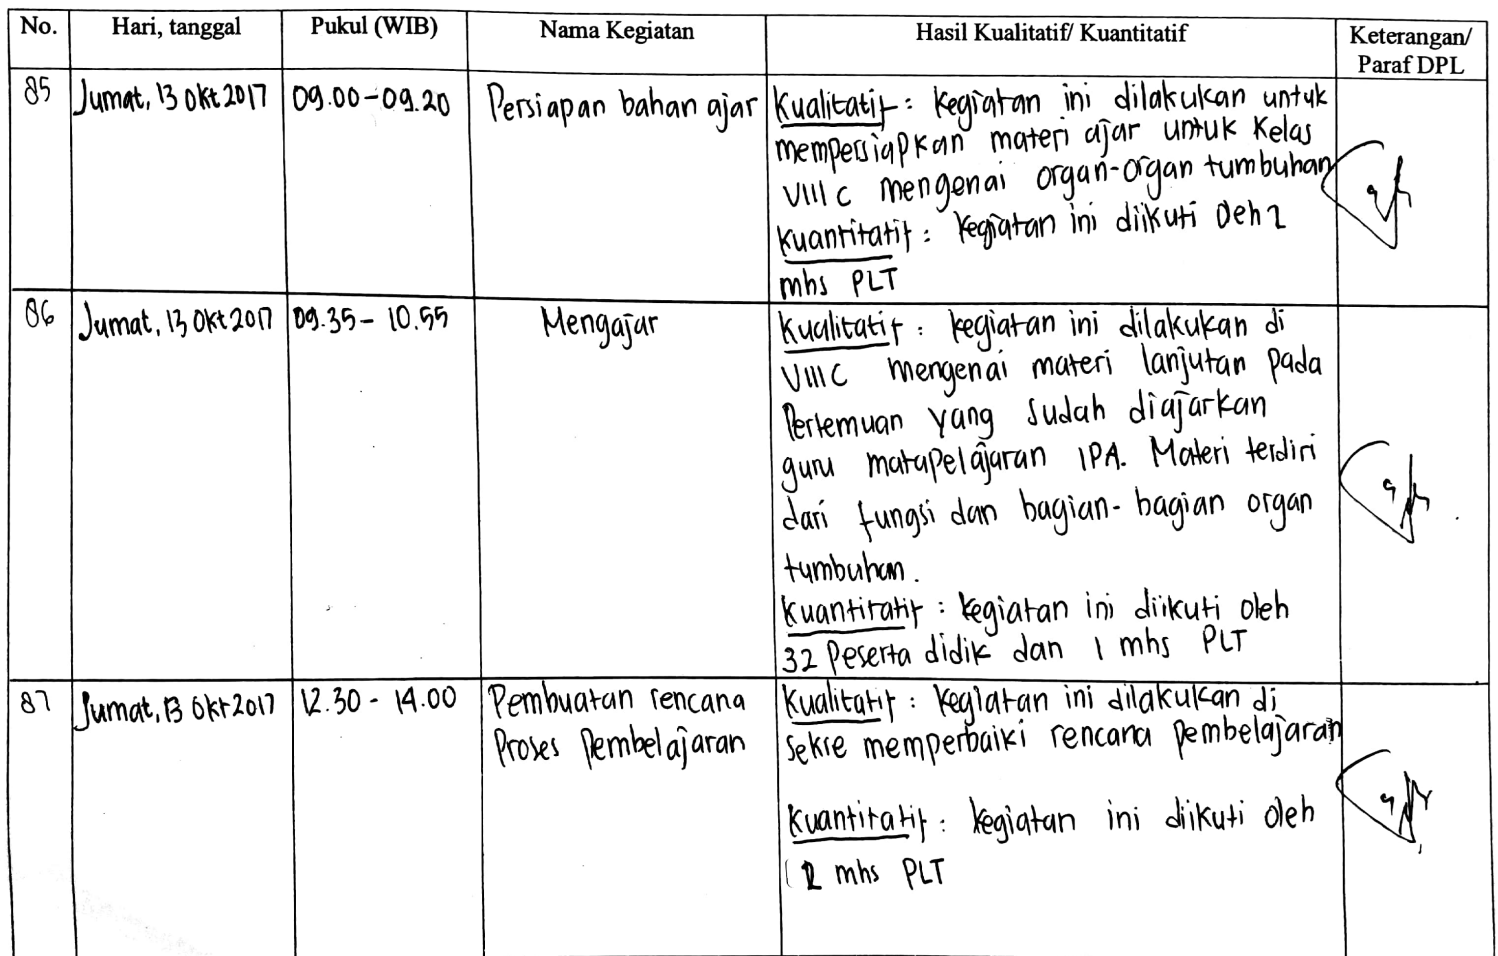 No. Hari, tanggal Pukul (WIB) Nama Kegiatan Hasil Kualitatif/ Kuantitatif Keterangan/
Paraf DPL
85 Jumat, 13 Okt 2017 09.00-09.20 Persiapan bahan ajar Kualitatif : kegiatan ini dilakukan untuk
mempersiapkan materi ajar untuk Kelas
VIII C mengenai organ-organ tumbuhan
Kuantitatif : kegiatan ini diikuti Oleh 2
mhs PLT
86 Jumat, 13 Okt 2017 09.35- 10.55 Mengajar Kualitatif : kegiatan ini dilakukan di
VIII C mengenai materi lanjutan pada
Pertemuan yang sudah diajarkan
guru matapelajaran IPA. Materi terdiri
dari fungsi dan bagian- bagian organ
tumbuhan.
Kuantitatif : kegiatan ini diikuti oleh
32 Peserta didik dan 1 mhs PLT
87 Jumat, 13 Okt 2017 12.30 - 14.00 Pembuatan rencana Kualitatif : kegiatan ini dilakukan di
Proses Pembelajaran Sekre memperbaiki rencana pembelajaran
Kuantitatif : kegiatan ini diikuti oleh
2 mhs PLT